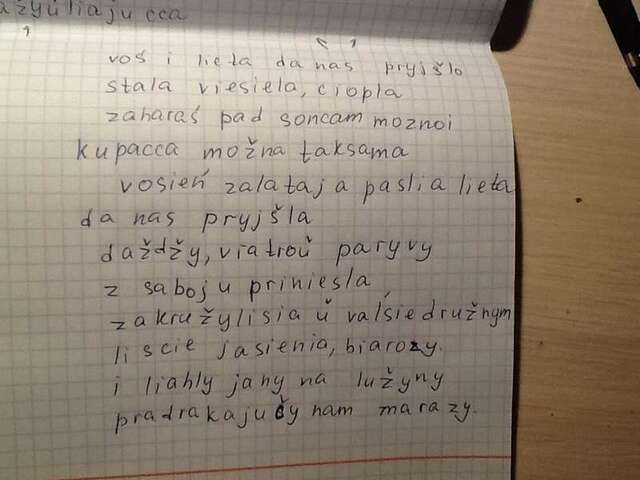 ažyŭliaju cca
voś i lieta da nas pryjšlo
stala viesiela, ciopla
zaharaš pad soncam moznoi
kupacca možna taksama
vosień zalataja paslia lieta
da nas pryjšla
daždžy, viatroŭ paryvy
z saboju priniesla,
zakružylisia ŭ valśie družnym
liscie jasienia, biarozy.
i liahly jany na lužyny
pradrakajučy nam marazy.